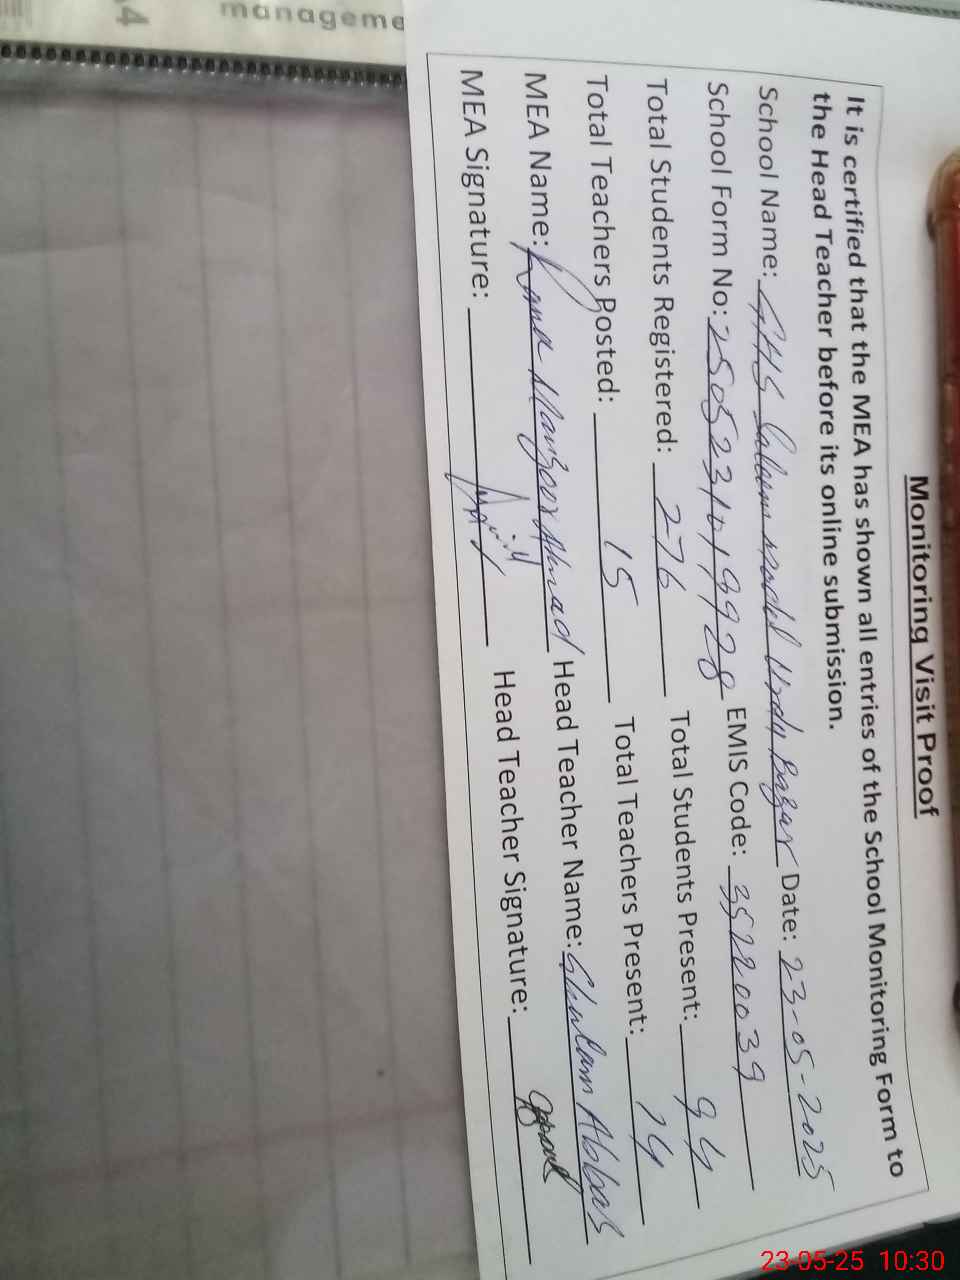 Monitoring Visit Proof
It is certified that the MEA has shown all entries of the School Monitoring Form to
the Head Teacher before its online submission.
School Name: GHS Salam Model Urdu Bazar Date: 23-05-2025
School Form No: 25052310199928 EMIS Code: 35220039
Total Students Registered: 276 Total Students Present: 94
Total Teachers Posted: 15 Total Teachers Present: 14
MEA Name: Rana Manzoor Ahmad Head Teacher Name: Ghulam Abbas
MEA Signature: Head Teacher Signature:
manageme
23-05-25 10:30